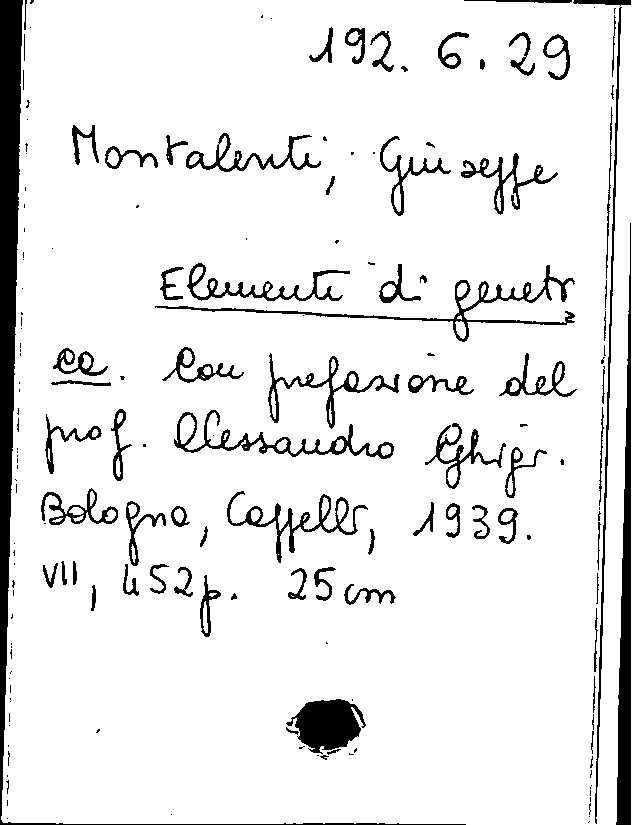 192. 6. 29
Montalenti, Giuseppe
Elementi di geneti
ca. Con prefazione del
prof. Alessandro Ghigi.
Bologna, Cappelli, 1939.
VII, 452 p. 25 cm